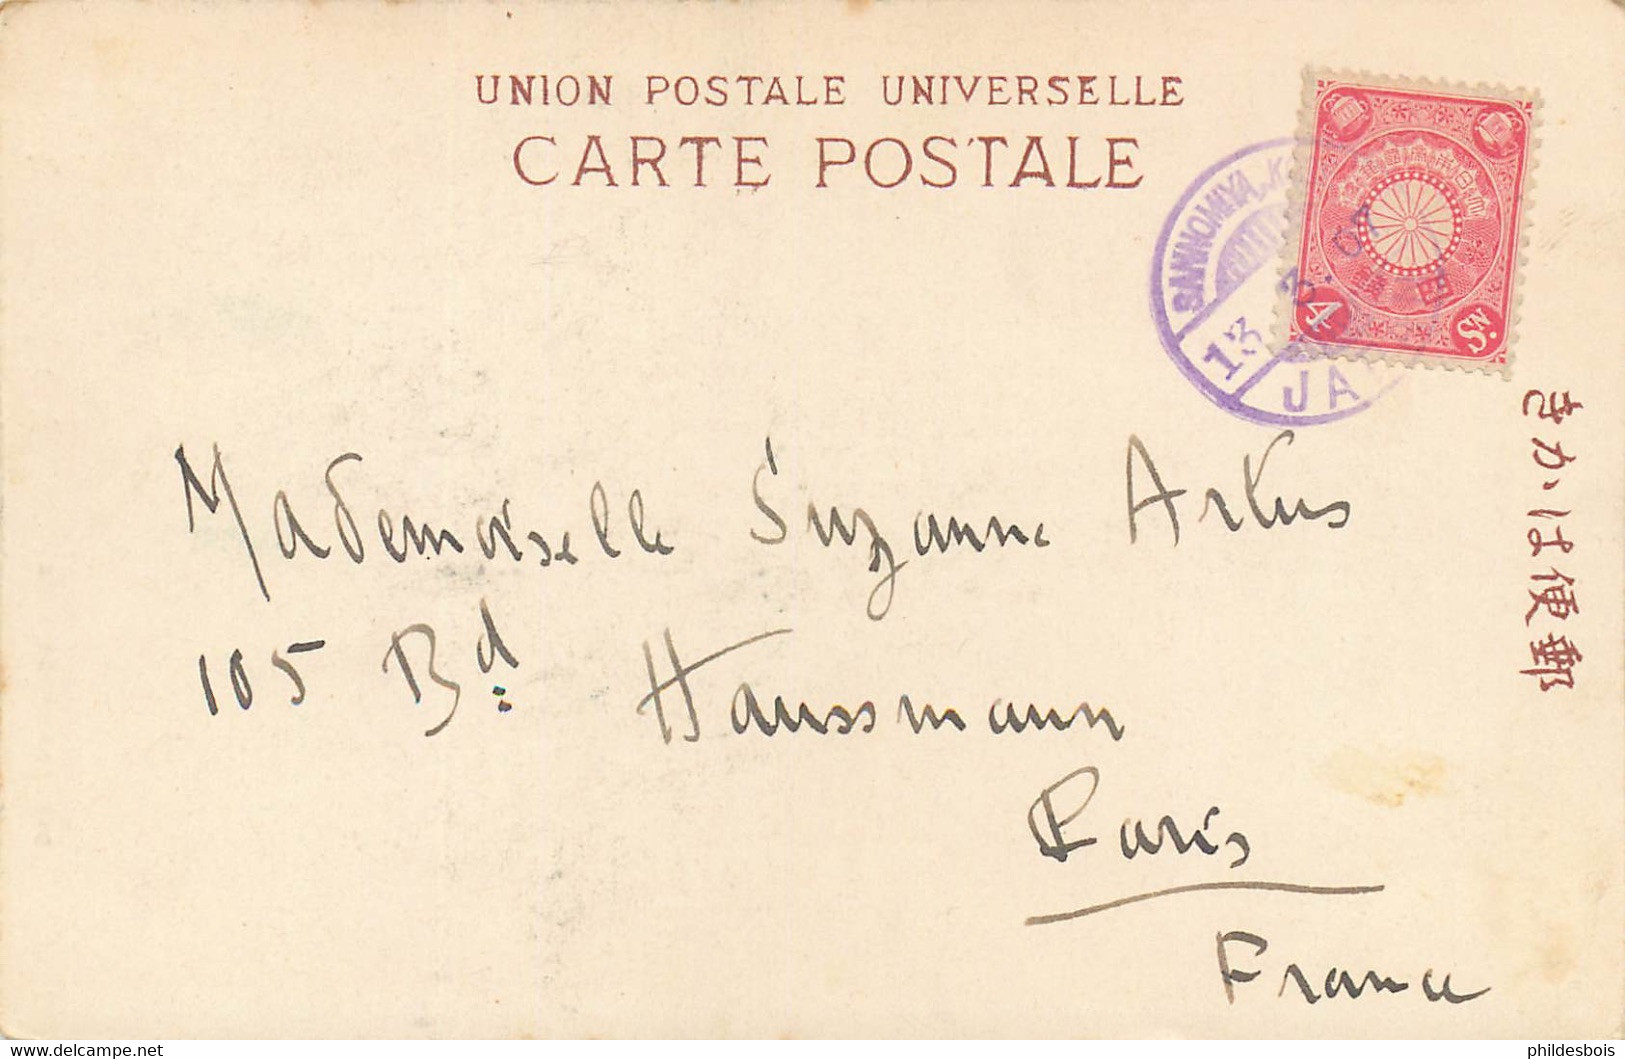 UNION POSTALE UNIVERSELLE
CARTE POSTALE
SANNOMIYA, K
13 3. 07
JA
4 Sn.
きかは便郵
Mademoiselle Suzanne Artus
105 Bd Haussmann
Paris
France
phildesbois